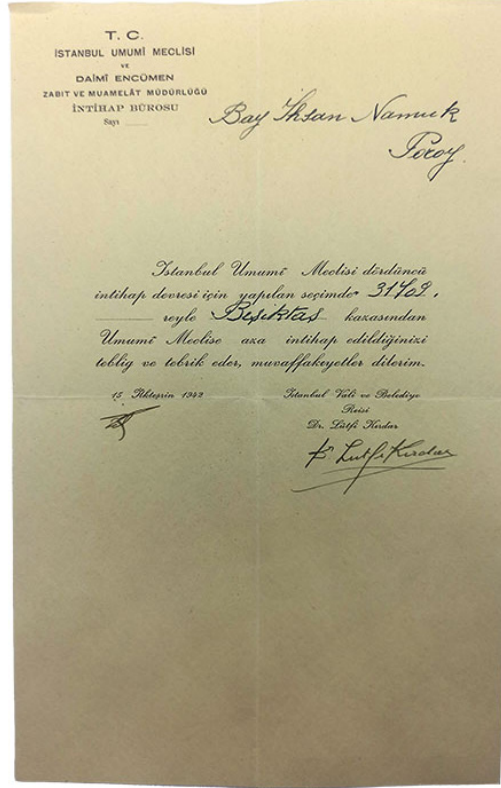 T. C.
İSTANBUL UMUMÎ MECLİSİ
VE
DAİMÎ ENCÜMEN
ZABIT VE MUAMELÂT MÜDÜRLÜĞÜ
İNTİHAP BÜROSU
Sayı
Bay İhsan Namık
Poroy.
Istanbul Umumî Meclisi dördüncü
intihap devresi için yapılan seçimde 31409.
reyle Beşiktaş kazasından
Umumî Meclise aza intihap edildiğinizi
teblig ve tebrik eder, muvaffakıyetler dilerim.
15 İlkteşrin 1942
Istanbul Vali ve Belediye
Reisi
Dr. Lûtfi Kırdar
Dr Lutfi Kırdar